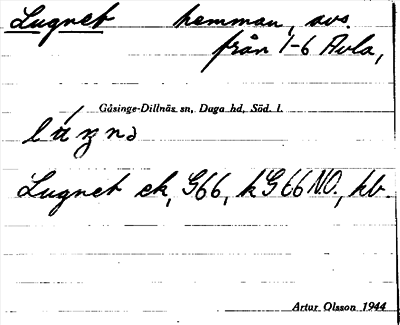 Lugnet hemman, avs.
från 1-6 Avla,
Gåsinge-Dillnäs sn, Daga hd, Söd. l.
Lugnet ek, G66, kG66NO., hb.
Artur Olsson 1944